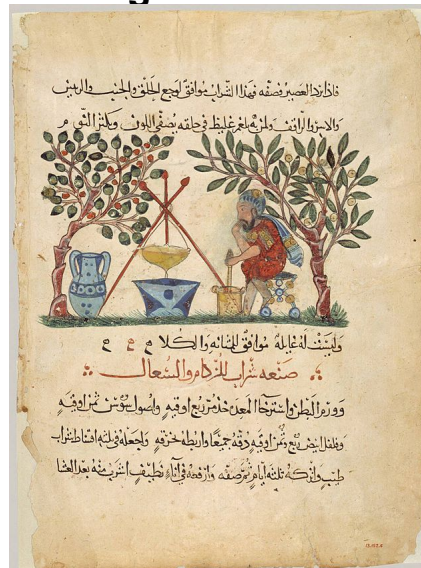 فاذا برد العصير فصفه فهذا الشراب موافق لوجع الحلق والجنب
ولمن به بلغم غليظ في حلقه يصفي اللون ويكثر النوم
وليست له غايلة موافق للمثانه والكلا
صنعه شراب للزكام والسعال
وورم البطن واسترخا المعده خذ مر ربع اوقيه واصول سوس ثمن اوقيه
وفلفل ابيض ربع وثمن اوقيه دقه جميعا واربطه خرقه واجعله في ثلثه اقساط شراب
طيب واتركه ثلثه ايام ثم صفه وارفعه في اناء نظيف اشرب منه بعد العشا